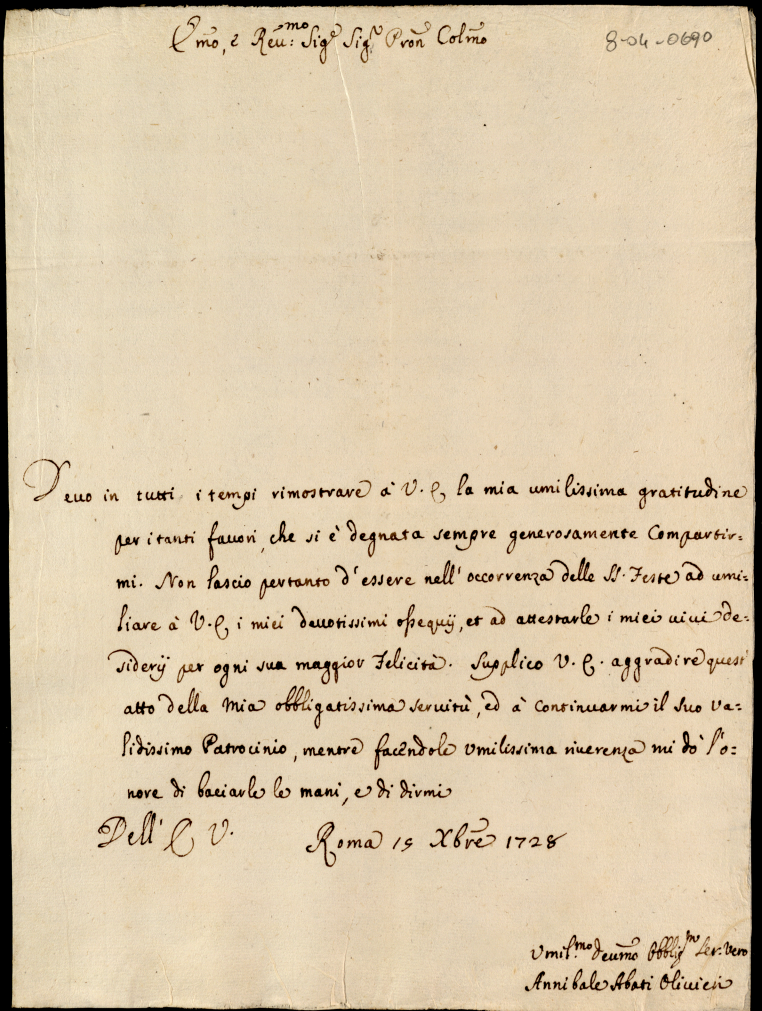 Emo, e Reu:mo Sigr Sigr Pron Colmo
8-04-0690
Deuo in tutti i tempi rimostrare à V. E. la mia umilissima gratitudine
per i tanti fauori, che si è degnata sempre generosamente Compartir=
mi. Non lascio pertanto d'essere nell'occorrenza delle SS. Feste ad umi=
liare à V. E. i miei deuotissimi ossequij, et ad attestarle i miei uiui de=
siderij per ogni sua maggior Felicità. Supplico V. E. aggradire quest'
atto della mia obbligatissima seruitù, ed à continuarmi il suo va=
lidissimo Patrocinio, mentre facendole umilissima riuerenza mi dò l'o=
nore di baciarle le mani, e di dirmi
Dell' E V. Roma 15 Xbre 1728
Umil.mo Deumo Obblig.mo Ser: Vero
Annibale Abati Oliuieri